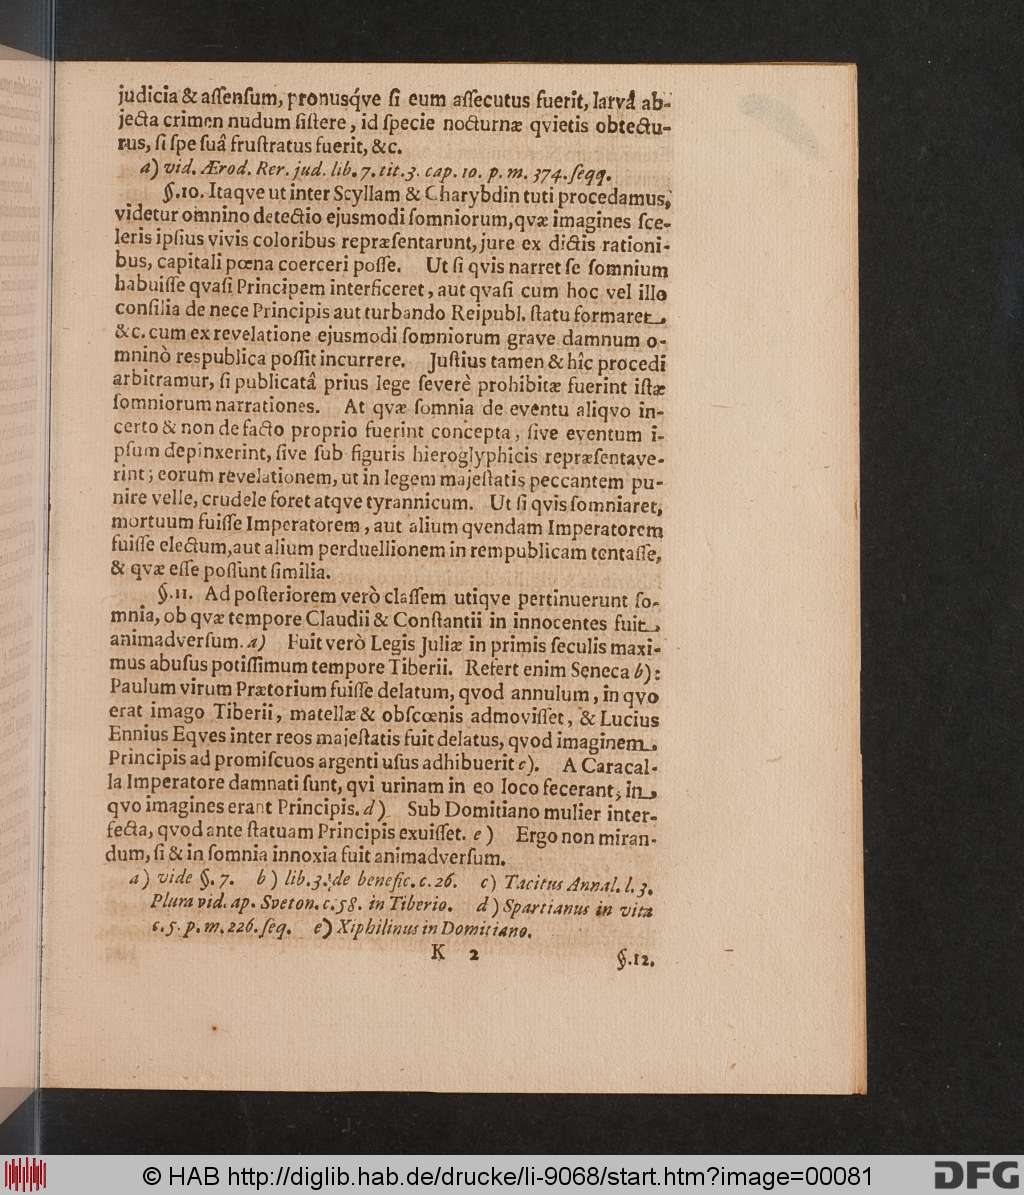 judicia & aſſenſum, pronusq́ve ſi eum aſſecutus fuerit, larvâ ab-
jecta crimen nudum ſiſtere, id ſpecie nocturnæ qvietis obtectu-
rus, ſi ſpe ſuâ fruſtratus fuerit, &c.
a) vid. Ærod. Rer. jud. lib. 7. tit. 3. cap. 10. p. m. 374. ſeqq.
§. 10. Itaqve ut inter Scyllam & Charybdin tuti procedamus,
videtur omnino detectio ejusmodi ſomniorum, qvæ imagines ſce-
leris ipſius vivis coloribus repræſentarunt, jure ex dictis rationi-
bus, capitali pœna coerceri poſſe. Ut ſi qvis narret ſe ſomnium
habuiſſe qvaſi Principem interficeret, aut qvaſi cum hoc vel illo
conſilia de nece Principis aut turbando Reipubl. ſtatu formaret,
&c. cum ex revelatione ejusmodi ſomniorum grave damnum o-
mninò respublica poſſit incurrere. Juſtius tamen & hîc procedi
arbitramur, ſi publicatâ prius lege ſeverè prohibitæ fuerint iſtæ
ſomniorum narrationes. At qvæ ſomnia de eventu aliqvo in-
certo & non de facto proprio fuerint concepta, ſive eventum i-
pſum depinxerint, ſive ſub figuris hieroglyphicis repræſentave-
rint; eorum revelationem, ut in legem majeſtatis peccantem pu-
nire velle, crudele foret atqve tyrannicum. Ut ſi qvis ſomniaret,
mortuum fuiſſe Imperatorem, aut alium qvendam Imperatorem
fuiſſe electum, aut alium perduellionem in rempublicam tentaſſe,
& qvæ eſſe poſſunt ſimilia.
§. 11. Ad poſteriorem verò claſſem utiqve pertinuerunt ſo-
mnia, ob qvæ tempore Claudii & Conſtantii in innocentes fuit
animadverſum. a) Fuit verò Legis Juliæ in primis ſeculis maxi-
mus abuſus potiſſimum tempore Tiberii. Refert enim Seneca b):
Paulum virum Prætorium fuiſſe delatum, qvod annulum, in qvo
erat imago Tiberii, matellæ & obſcœnis admoviſſet, & Lucius
Ennius Eqves inter reos majeſtatis fuit delatus, qvod imaginem
Principis ad promiſcuos argenti uſus adhibuerit c). A Caracal-
la Imperatore damnati ſunt, qvi urinam in eo loco fecerant, in
qvo imagines erant Principis. d) Sub Domitiano mulier inter-
fecta, qvod ante ſtatuam Principis exuiſſet. e) Ergo non miran-
dum, ſi & in ſomnia innoxia fuit animadverſum.
a) vide §. 7. b) lib. 3. de benefic. c. 26. c) Tacitus Annal. l. 3.
Plura vid. ap. Sveton. c. 58. in Tiberio. d) Spartianus in vita
c. 5. p. m. 226. ſeq. e) Xiphilinus in Domitiano.
K 2 §. 12.
© HAB http://diglib.hab.de/drucke/li-9068/start.htm?image=00081
DFG